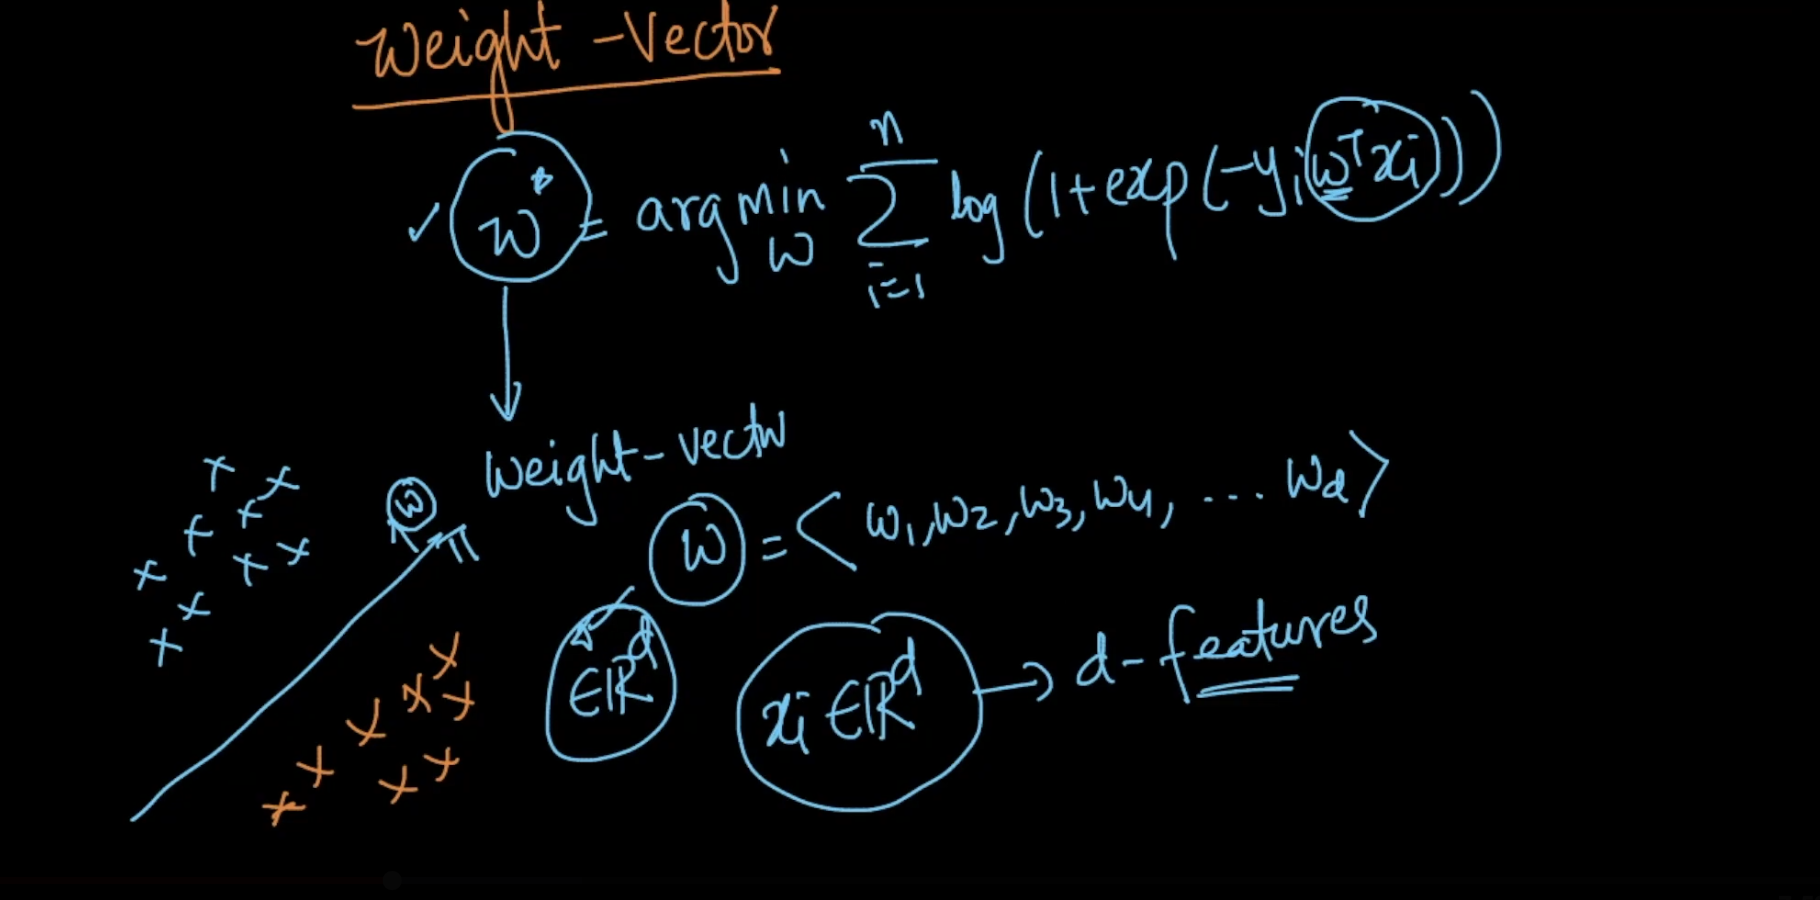 Weight-Vector
w* = argmin_w Σ_{i=1}^{n} log(1+exp(-y_i w^T x_i)))
Weight-vector
w
π
w = <w_1, w_2, w_3, w_4, ... w_d>
∈ℝ^d
x_i ∈ ℝ^d → d-features